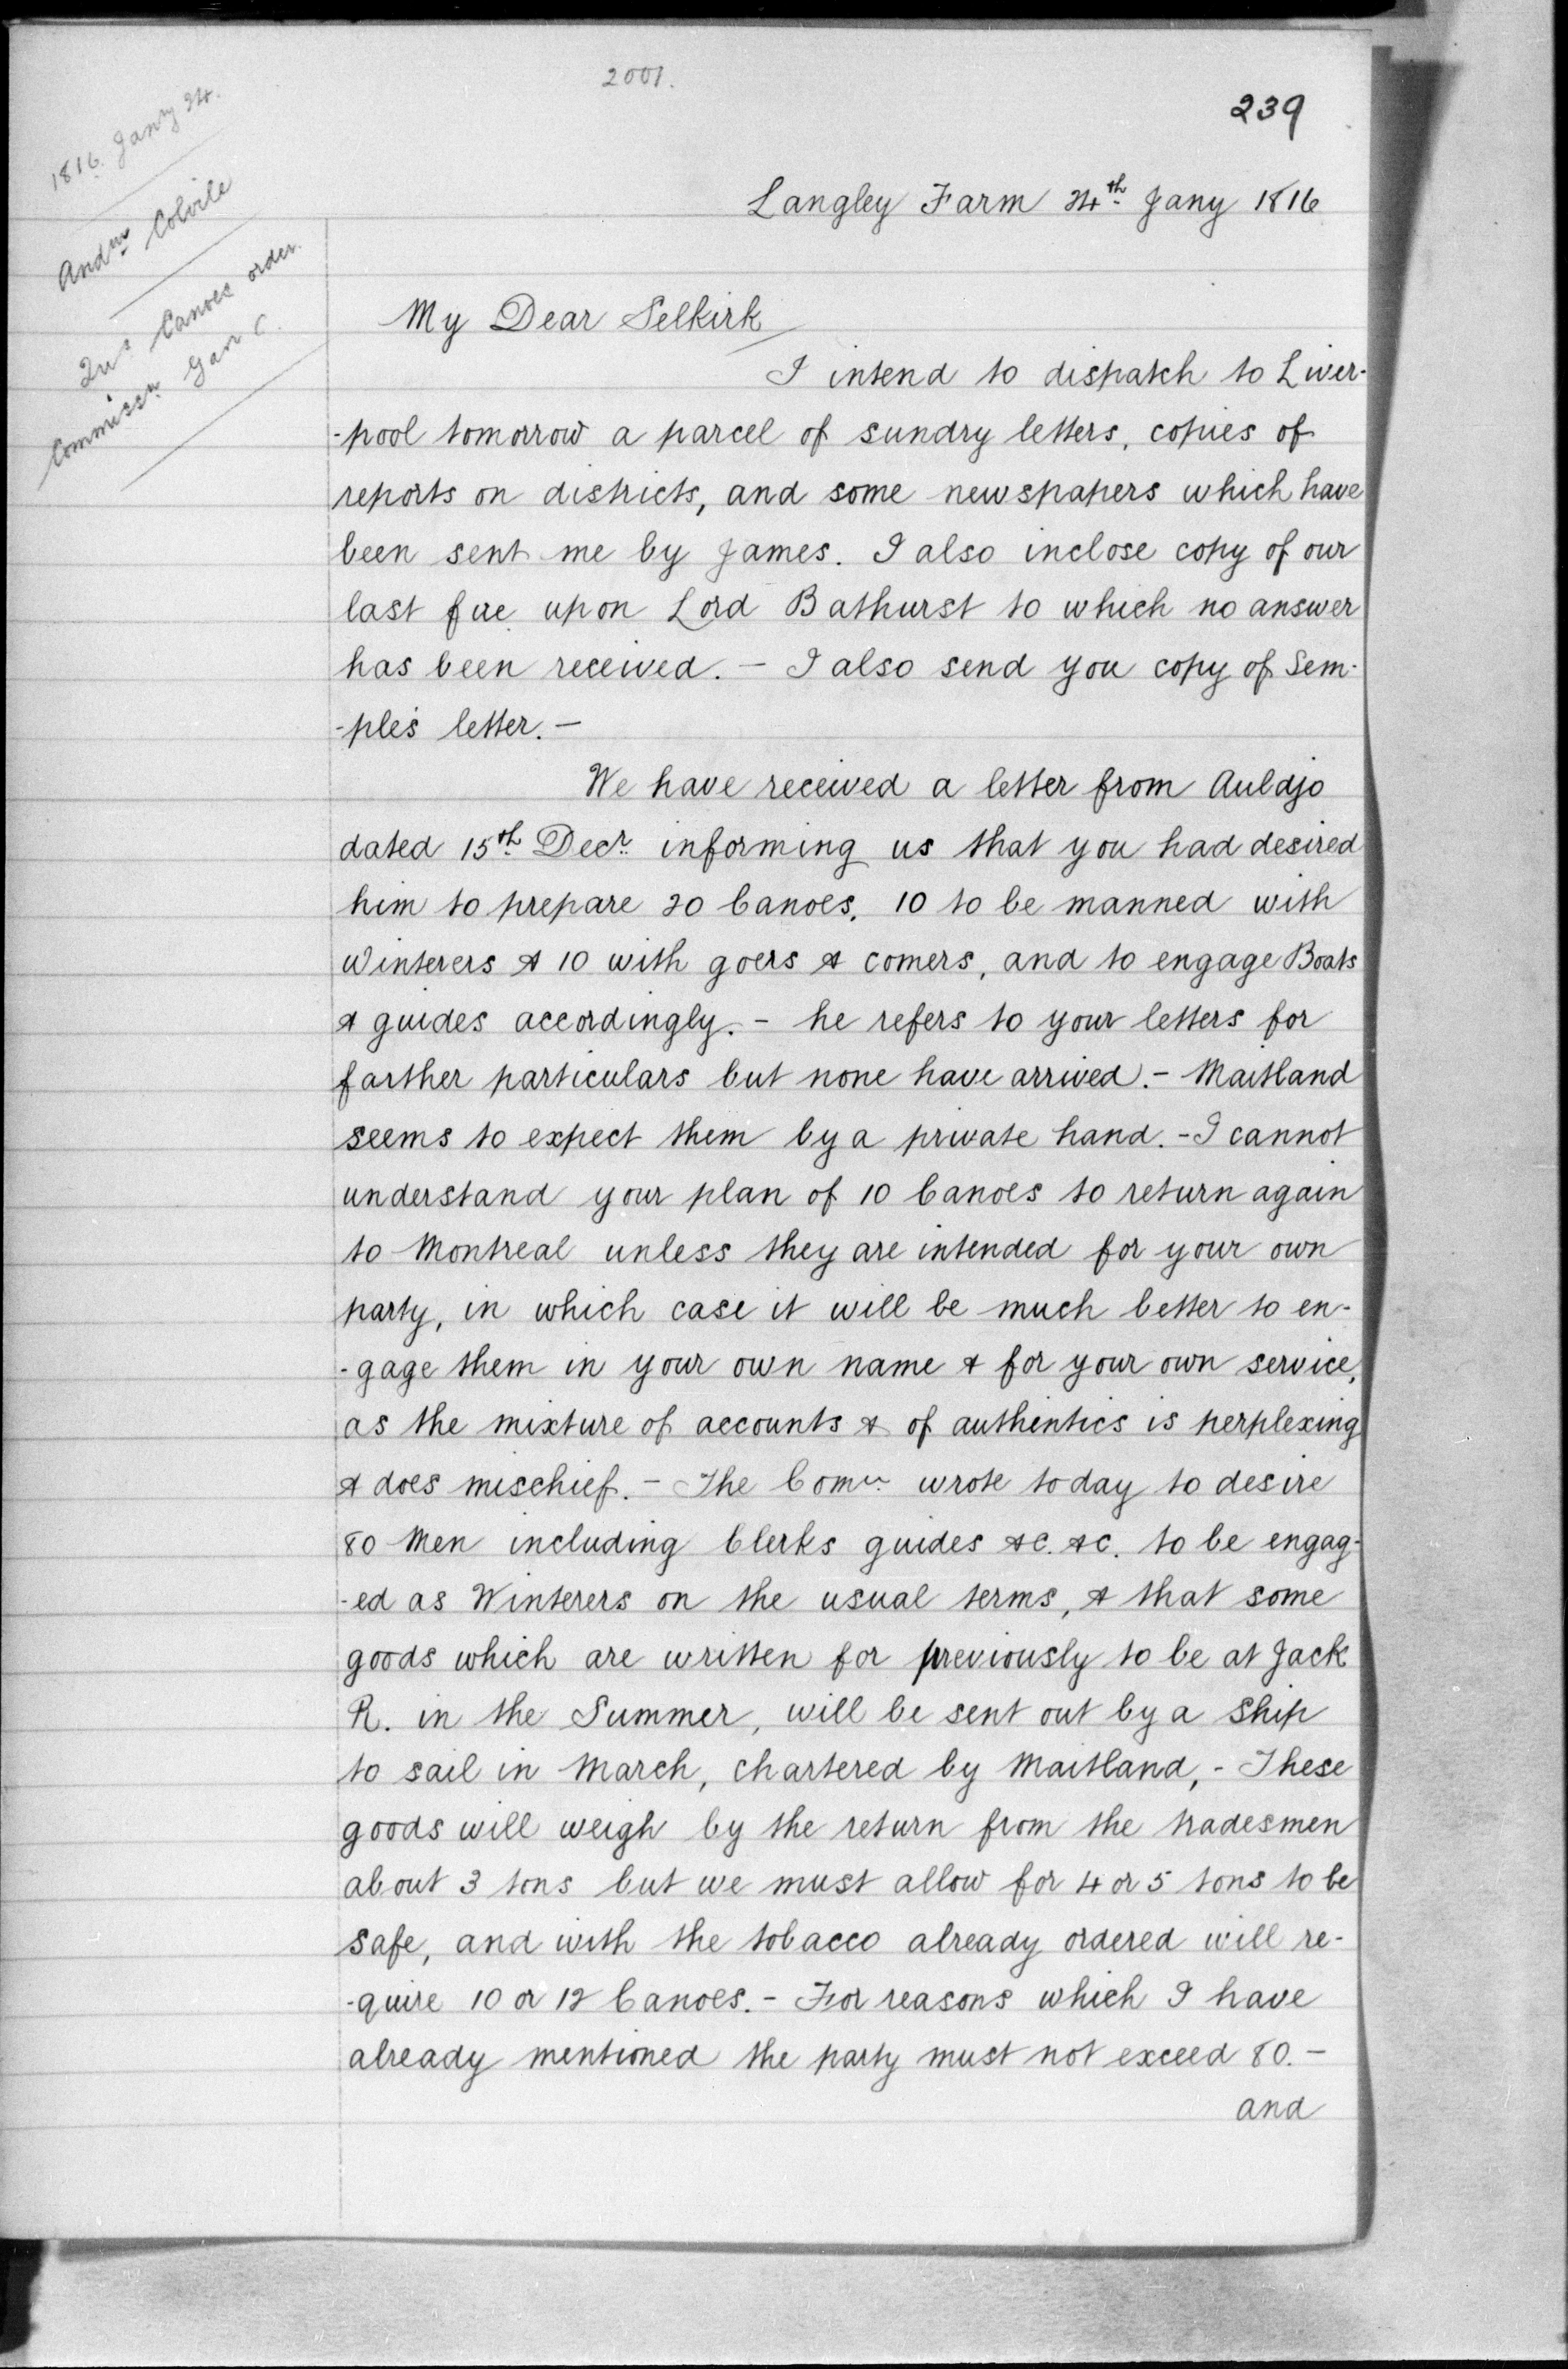 2001.
239
1816. Jany 24.
Andw Colvile
Canoes order.
Langley Farm 24th Jany 1816
My Dear Selkirk
I intend to dispatch to Liver-
-pool tomorrow a parcel of sundry letters, copies of
reports on districts, and some newspapers which have
been sent me by James. I also inclose copy of our
last fire upon Lord Bathurst to which no answer
has been received. - I also send you copy of Sem-
-ple's letter. -
We have received a letter from Auldjo
dated 15th Decr informing us that you had desired
him to prepare 20 Canoes, 10 to be manned with
Winterers & 10 with goers & comers, and to engage Boats
& guides accordingly. - he refers to your letters for
farther particulars but none have arrived. - Maitland
seems to expect them by a private hand. - I cannot
understand your plan of 10 Canoes to return again
to Montreal unless they are intended for your own
party, in which case it will be much better to en-
-gage them in your own name & for your own service,
as the mixture of accounts & of authentics is perplexing
& does mischief. - The Comee wrote today to desire
80 Men including Clerks guides &c. &c. to be engag-
-ed as Winterers on the usual terms, & that some
goods which are written for previously to be at Jack
R. in the Summer, will be sent out by a Ship
to sail in March, chartered by Maitland, - These
goods will weigh by the return from the tradesmen
about 3 tons but we must allow for 4 or 5 tons to be
safe, and with the tobacco already ordered will re-
-quire 10 or 12 Canoes. - For reasons which I have
already mentioned the party must not exceed 80. -
and